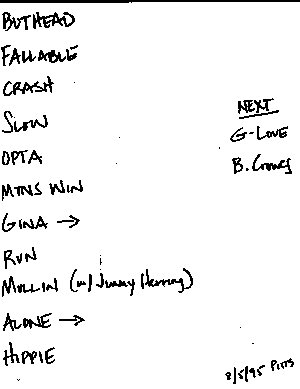 BUTHEAD
FALLABLE
CRASH
SLOW
OPTA
MTNS WIN
GINA →
RUN
MULLIN (w/ Jimmy Herring)
ALONE →
HIPPIE
NEXT
G-LOVE
B. Crowes
8/5/95 PITTS